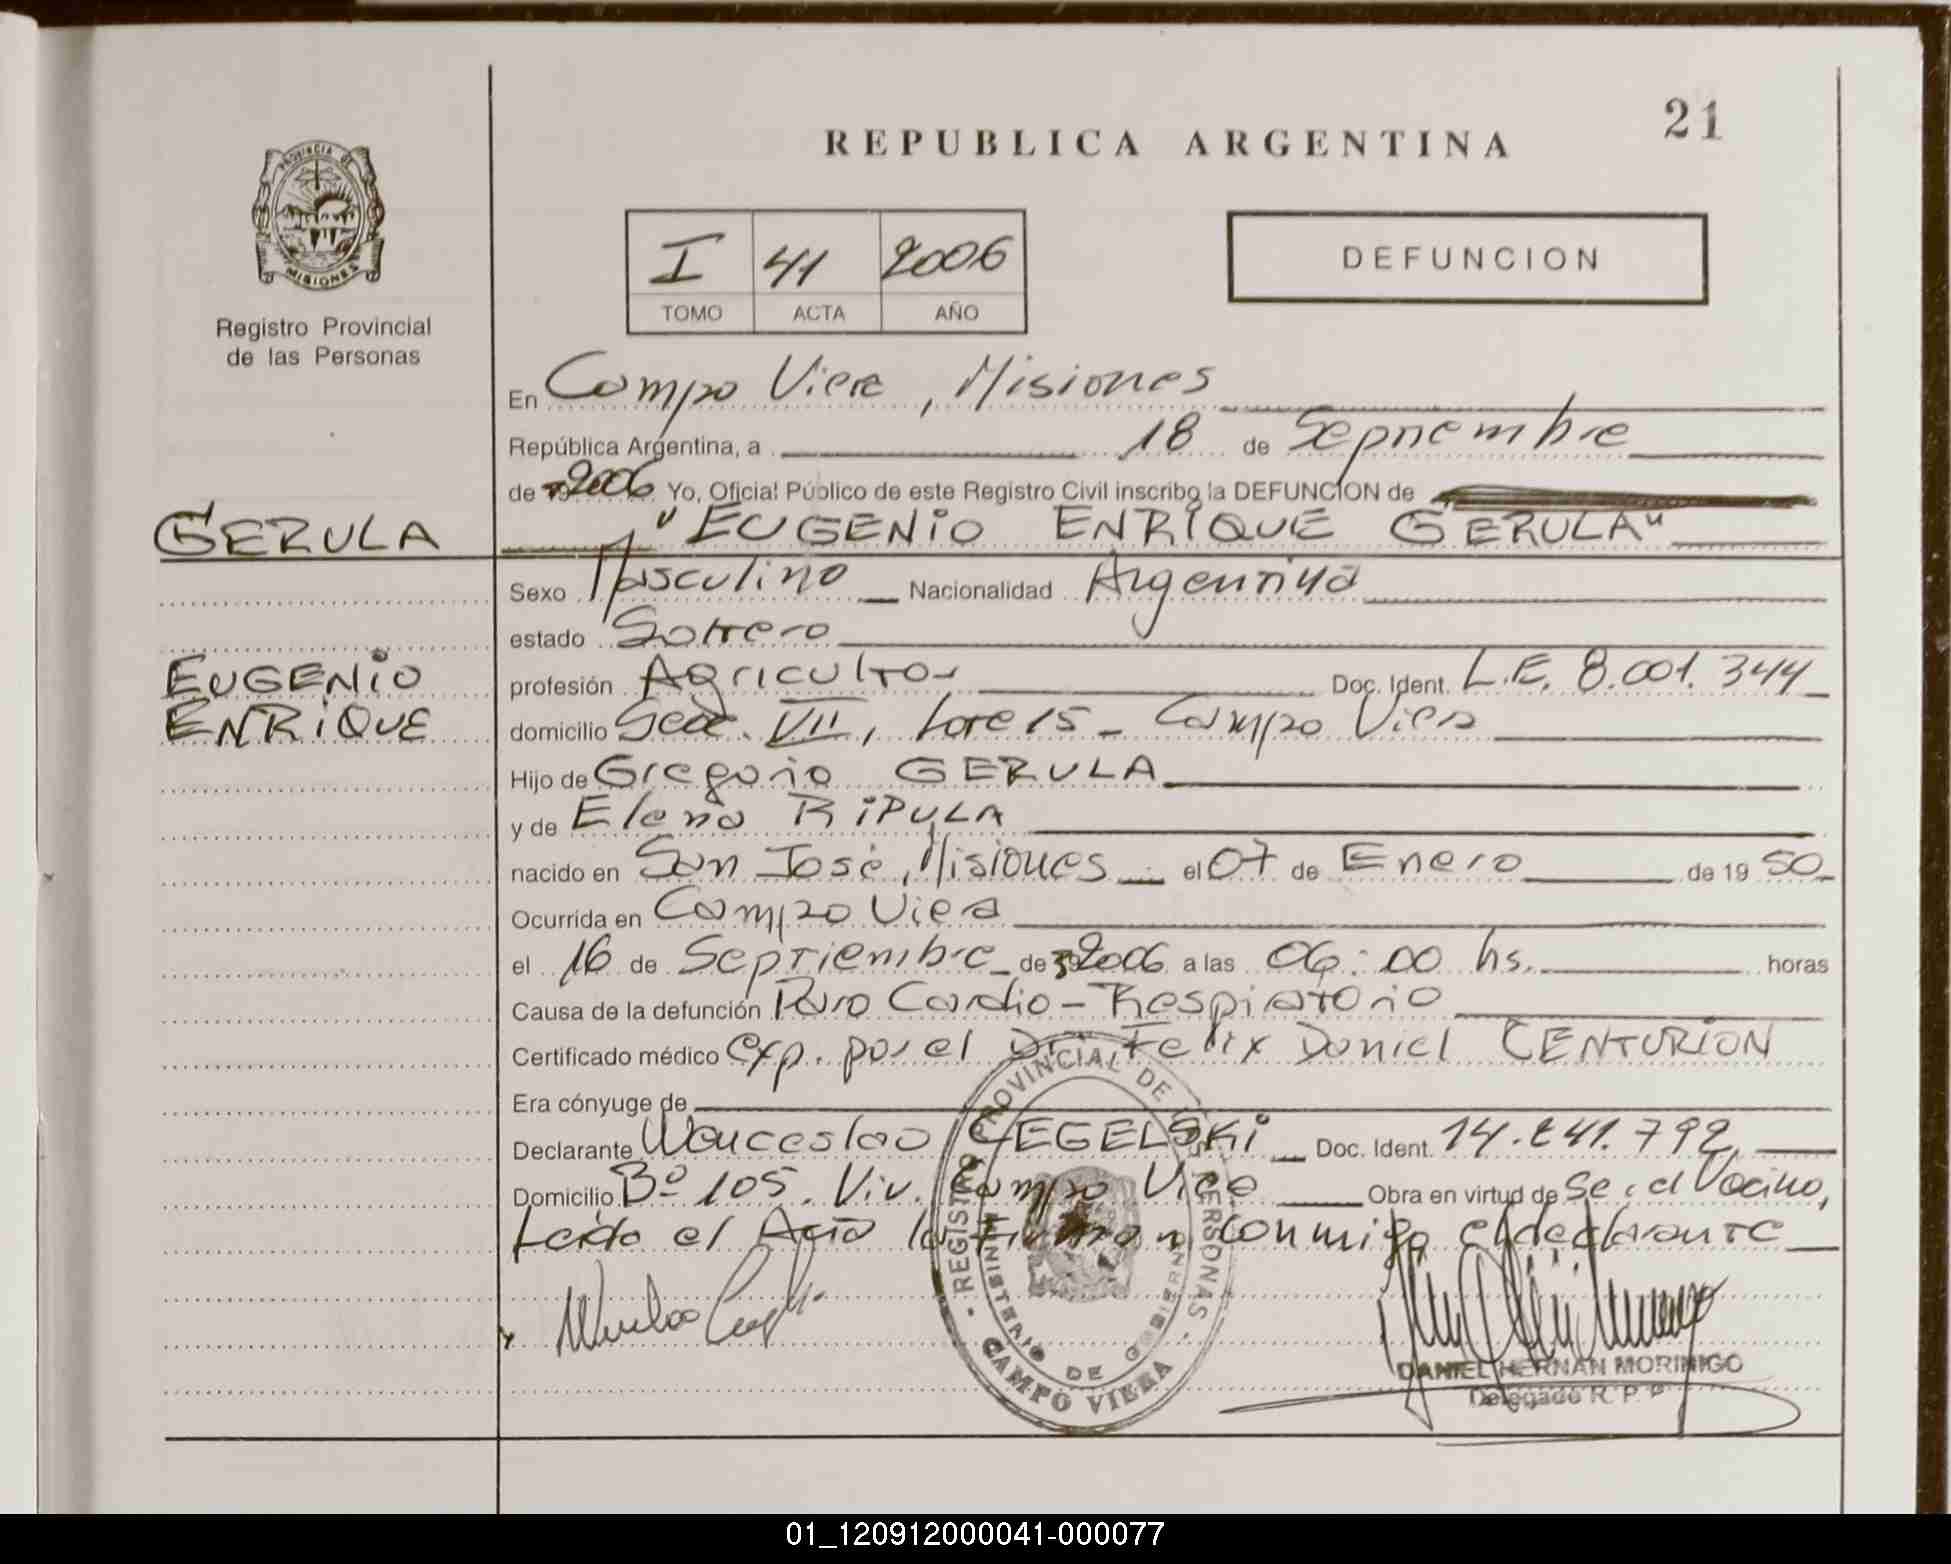 21
REPUBLICA ARGENTINA
PROVINCIA DE
MISIONES
Registro Provincial
de las Personas
I 41 2006
TOMO ACTA AÑO
DEFUNCION
En Campo Viera, Misiones
República Argentina, a 18 de Septiembre
de 2006 Yo, Oficial Público de este Registro Civil inscribo la DEFUNCION de
GERULA
"EUGENIO ENRIQUE GERULA"
Sexo Masculino Nacionalidad Argentina
estado Soltero
EUGENIO
ENRIQUE
profesión Agricultor Doc. Ident. L.E. 8.001.344
domicilio Secc. VII, Lote 15 - Campo Viera
Hijo de Gregorio GERULA
y de Elena RIPULA
nacido en San José, Misiones el 07 de Enero de 19 50
Ocurrida en Campo Viera
el 16 de Septiembre de 2006 a las 06:00 hs. horas
Causa de la defunción Paro Cardio-Respiratorio
Certificado médico exp. por el Dr. Felix Daniel CENTURION
Era cónyuge de
Declarante Wenceslao CEGELSKI Doc. Ident. 14.241.792
Domicilio Bº 105 Viv. Campo Viera Obra en virtud de Ser el Vecino,
Leída el Acta la Firman conmigo el declarante
REGISTRO PROVINCIAL DE LAS PERSONAS
MINISTERIO DE GOBIERNO
CAMPO VIERA
DANIEL HERNAN MORINIGO
Delegado R. P. P.
01_120912000041-000077